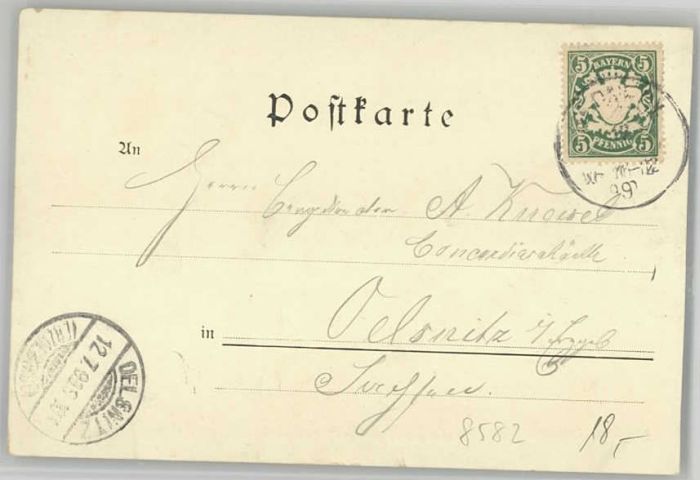 5 BAYERN 5
5 PFENNIG 5
99
Poſtkarte
An
Herrn A. Knowel
Concordiaschächte
in Oelsnitz i/Erzgeb
Sachsen.
OELSNITZ
12.7.99
(ERZGEB
8582 18,-